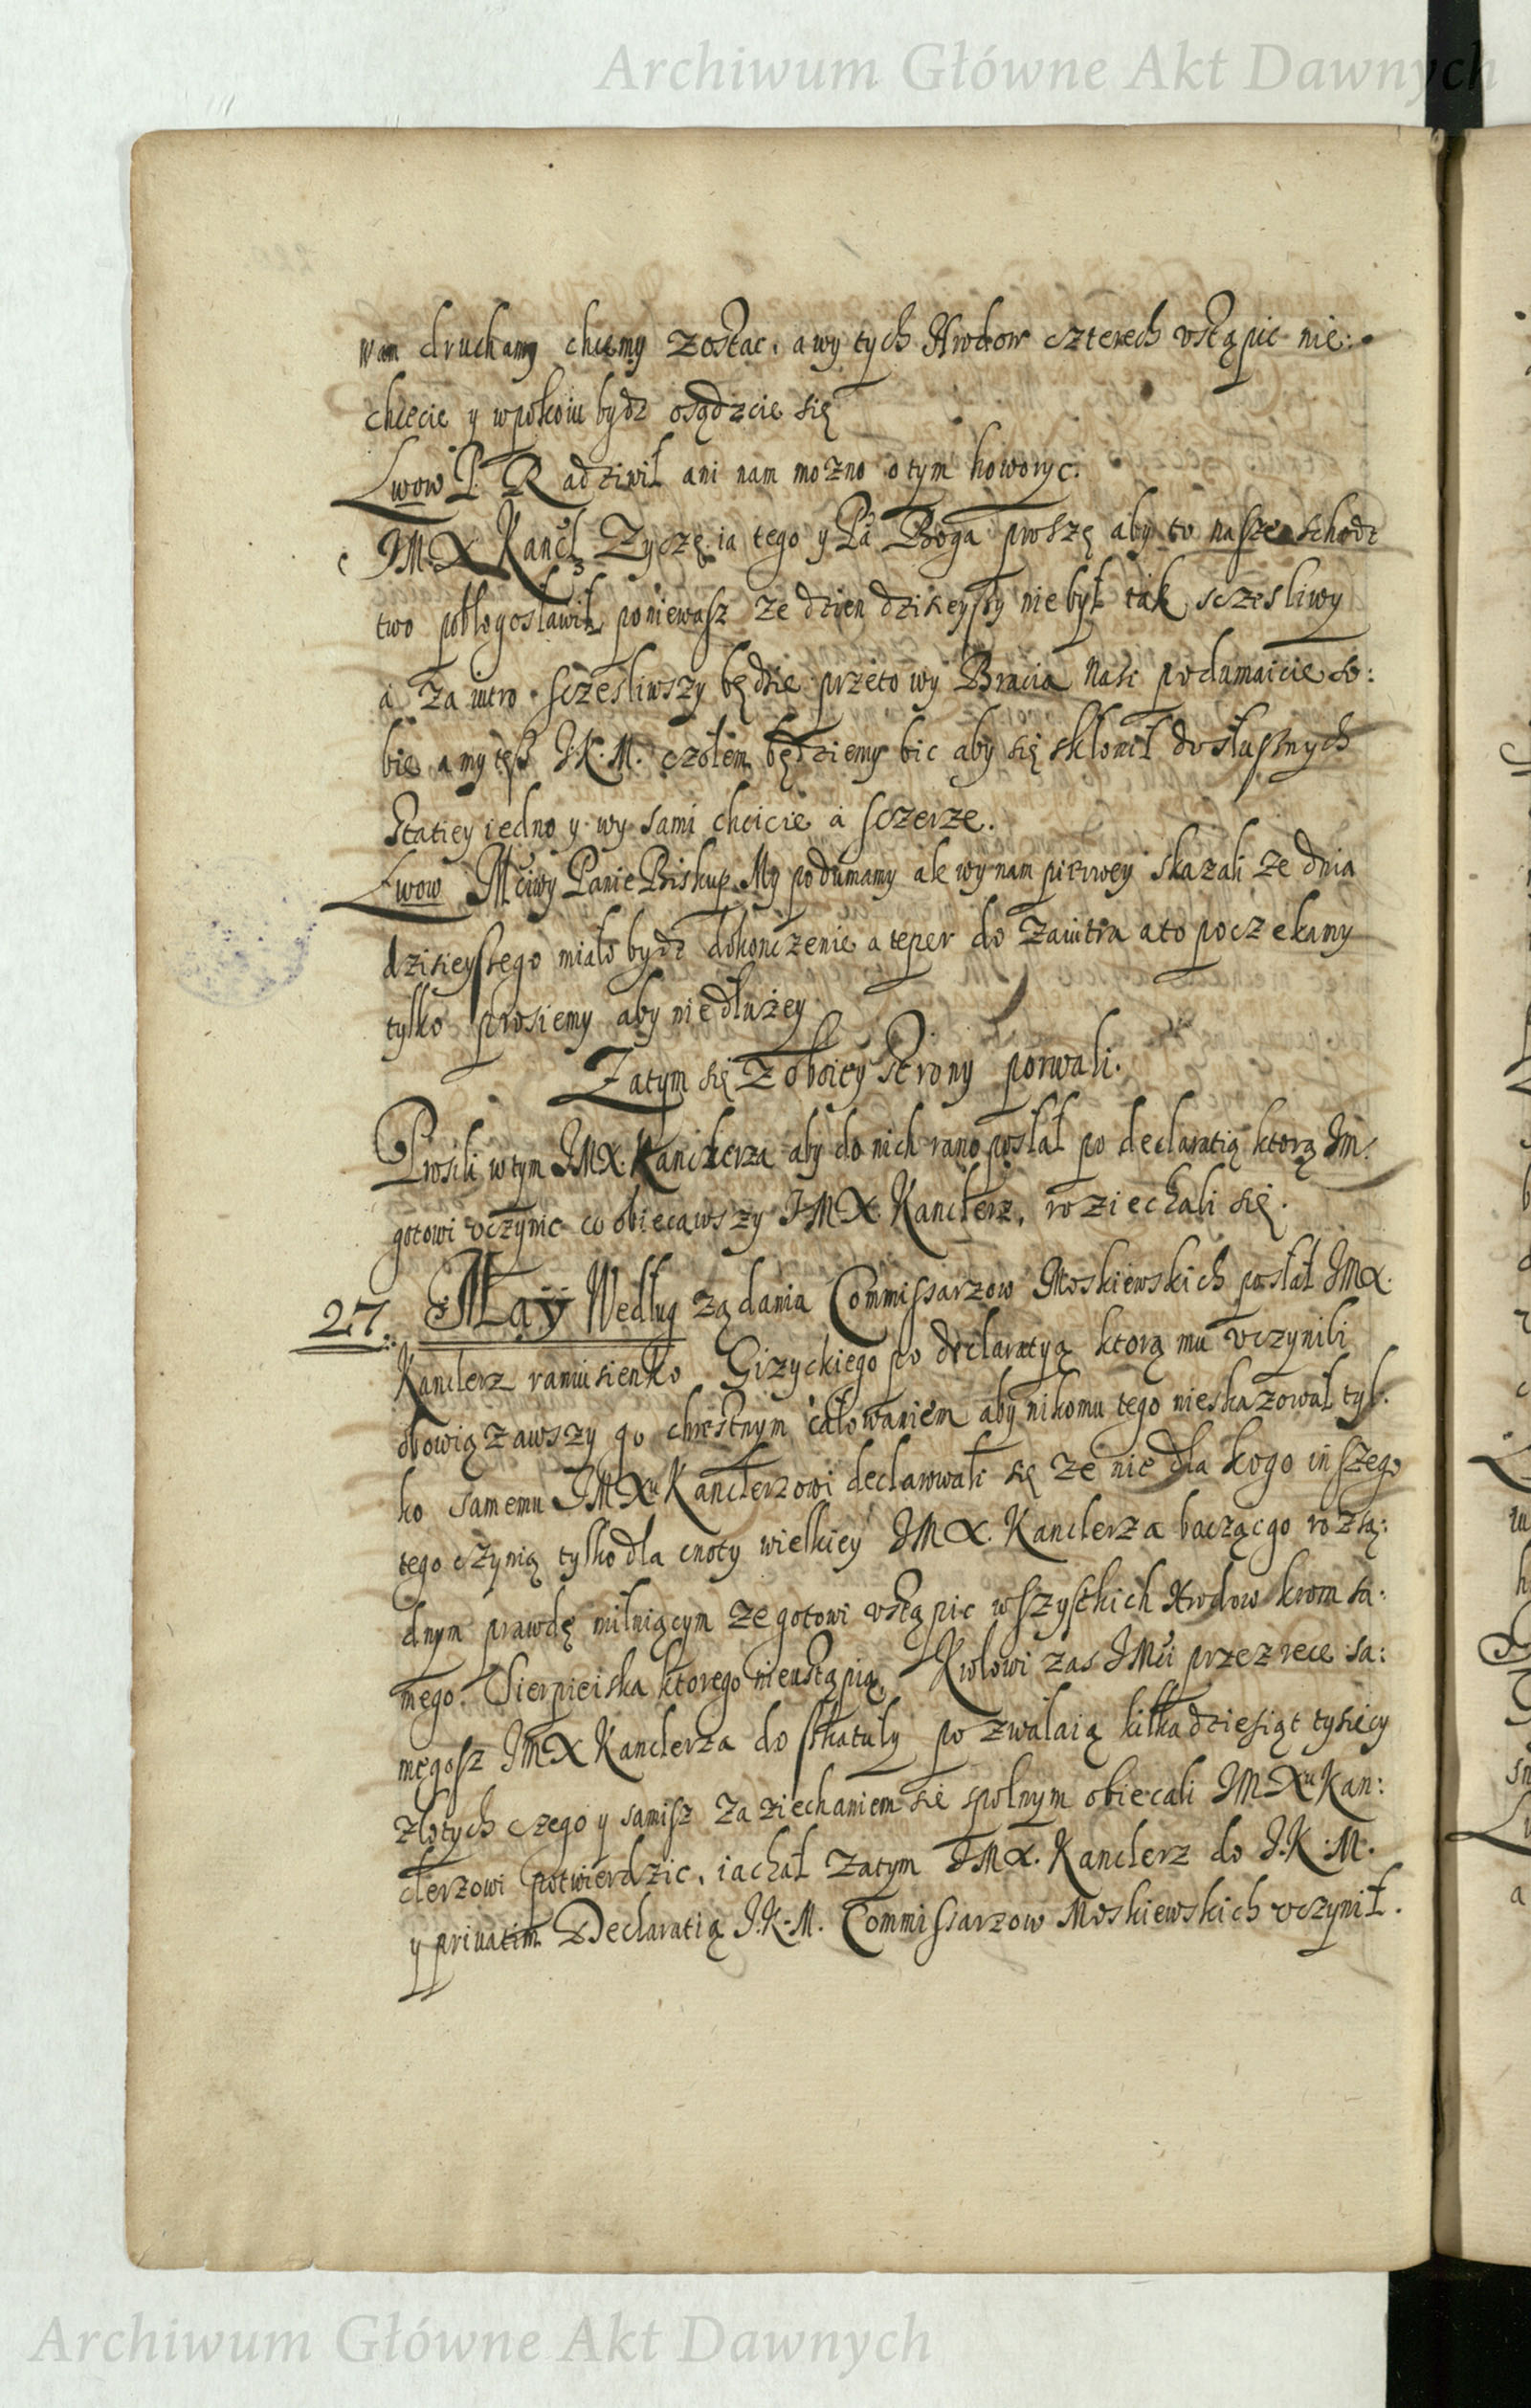 Archiwum Główne Akt Dawnych
wam druhamy chcemy zostac, a wy tych Hrodow czterech vstąpic nie:
chcecie y w pokoiu bydz osądzcie się
Lwow P. Radziwił ani nam mozno o tym howoryc.
JMX Kancl Zyczę ia tego y Pā Boga proszę aby to nasze schodz
two pobłogosławił, poniewasz ze dzien dzisieyszy nie był tak sczesliwy
a za iutro sczesliwszy będzie przeto wy Bracia Nasi podumaicie so:
bie a my też JK.M. czołem będziemy bic aby się skłonił do słusznych
Statiey iedno y wy sami chcicie a sczerze.
Lwow Mciwy Panie Biskup My podumamy ale wy nam pierwey skazali ze dnia
dzisieyszego miało bydz dokonczenie a teper do zaiutra a to poczekamy
tylko prosiemy aby nie dłużey
Zatym się z oboiey strony porwali.
Prosili w tym JMX. Kanclerza aby do nich rano posłał po declaratią ktorą Jm.
gotowi vczynic co obiecawszy JMX. Kanclerz, roziechali się.
27. May Według ządania Commissarzow Moskiewskich posłał JMX.
Kanclerz raniusienko Gizyckiego po declaratyą ktorą mu vczynili
obowiązawszy go chrestnym całowaniem aby nikomu tego nieskazował tyl:
ko samemu JMXu Kanclerzowi declarowali się ze nie dla kogo inszego
tego czynią tylko dla cnoty wielkiey JMX. Kanclerza bacząc go rozsą:
dnym prawdę miłuiącym ze gotowi vstąpic wszystkich Hrodow krom sa:
mego Sierpieiska ktorego nieustąpią, Krolowi zas JMci przez rece sa:
megosz JMX Kanclerza do szkatuły pozwalaią kilkadziesiąt tysięcy
złotych czego y samisz za ziechaniem się spolnym obiecali JMXu Kan:
clerzowi potwierdzic, iachał zatym JMX. Kanclerz do J.K.M.
y priuatim Declaratią J.K.M. Commissarzow Moskiewskich vczynił.
Archiwum Główne Akt Dawnych